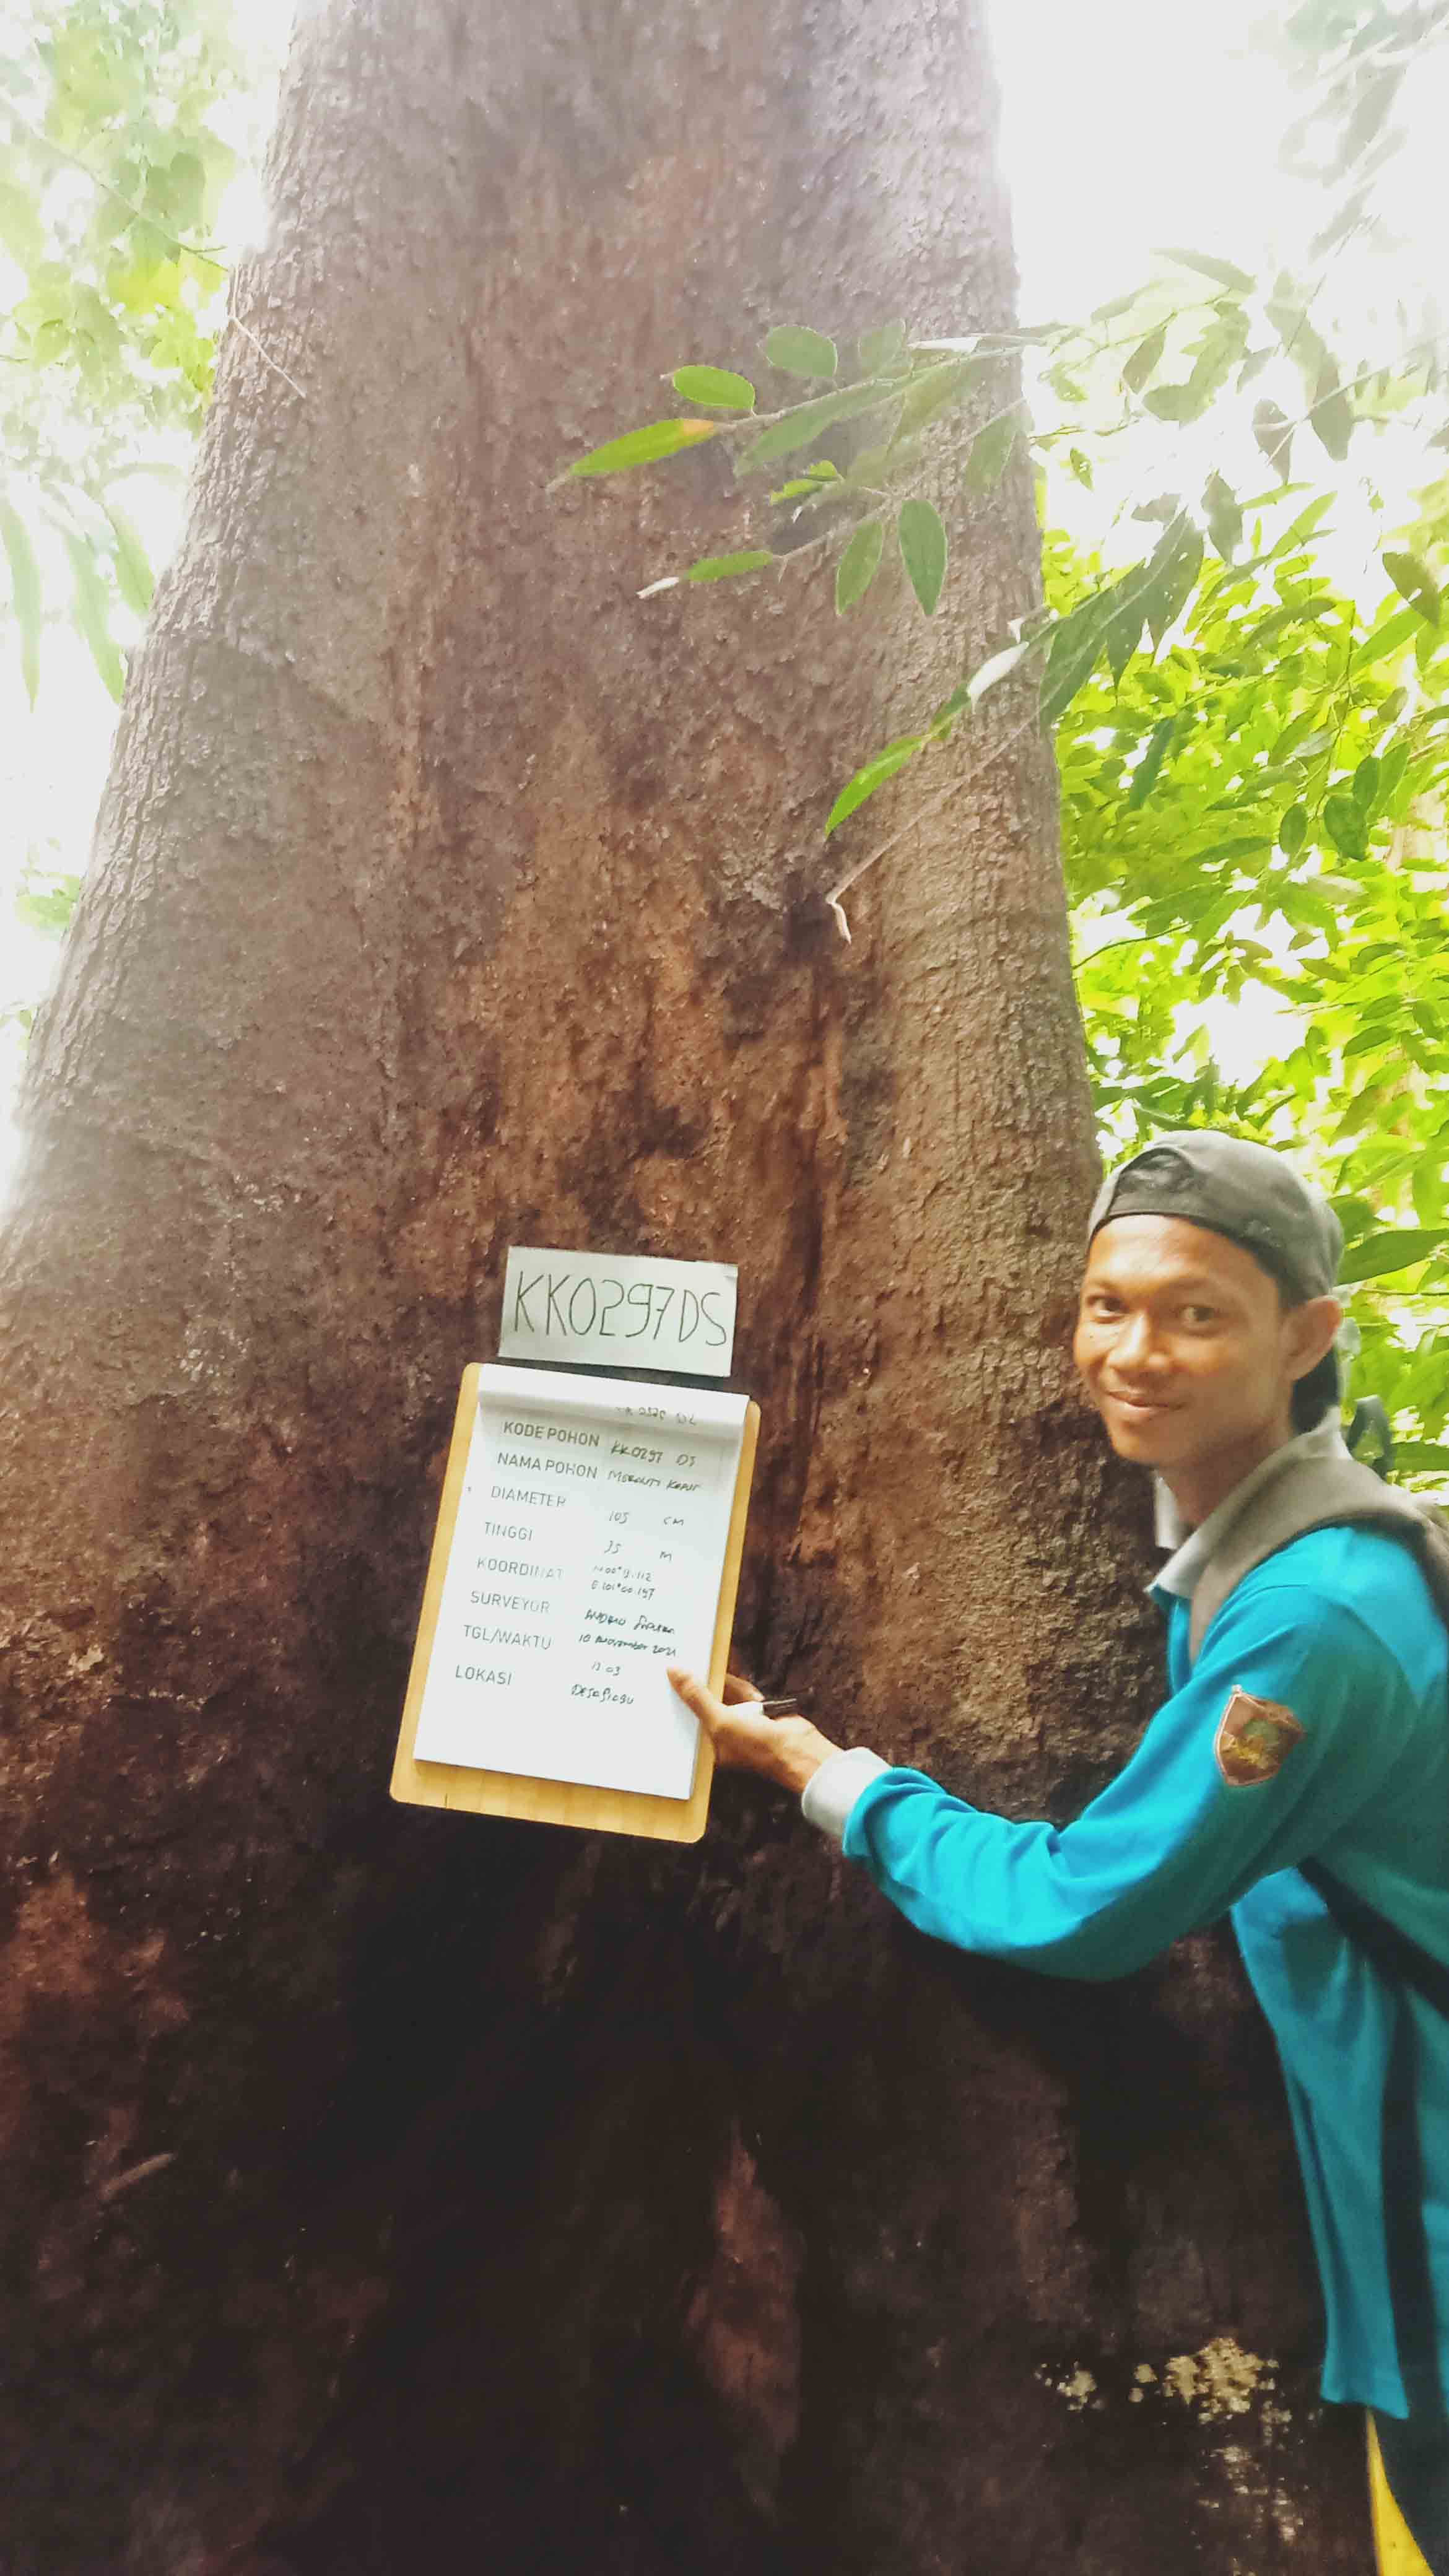 KK0297DS
KODE POHON KK0297 DS
NAMA POHON MERANTI KAPUR
DIAMETER 105 CM
TINGGI 35 M
KOORDINAT
E 101°00.197
SURVEYOR
TGL/WAKTU 10 November 2021
13 03
LOKASI DESA